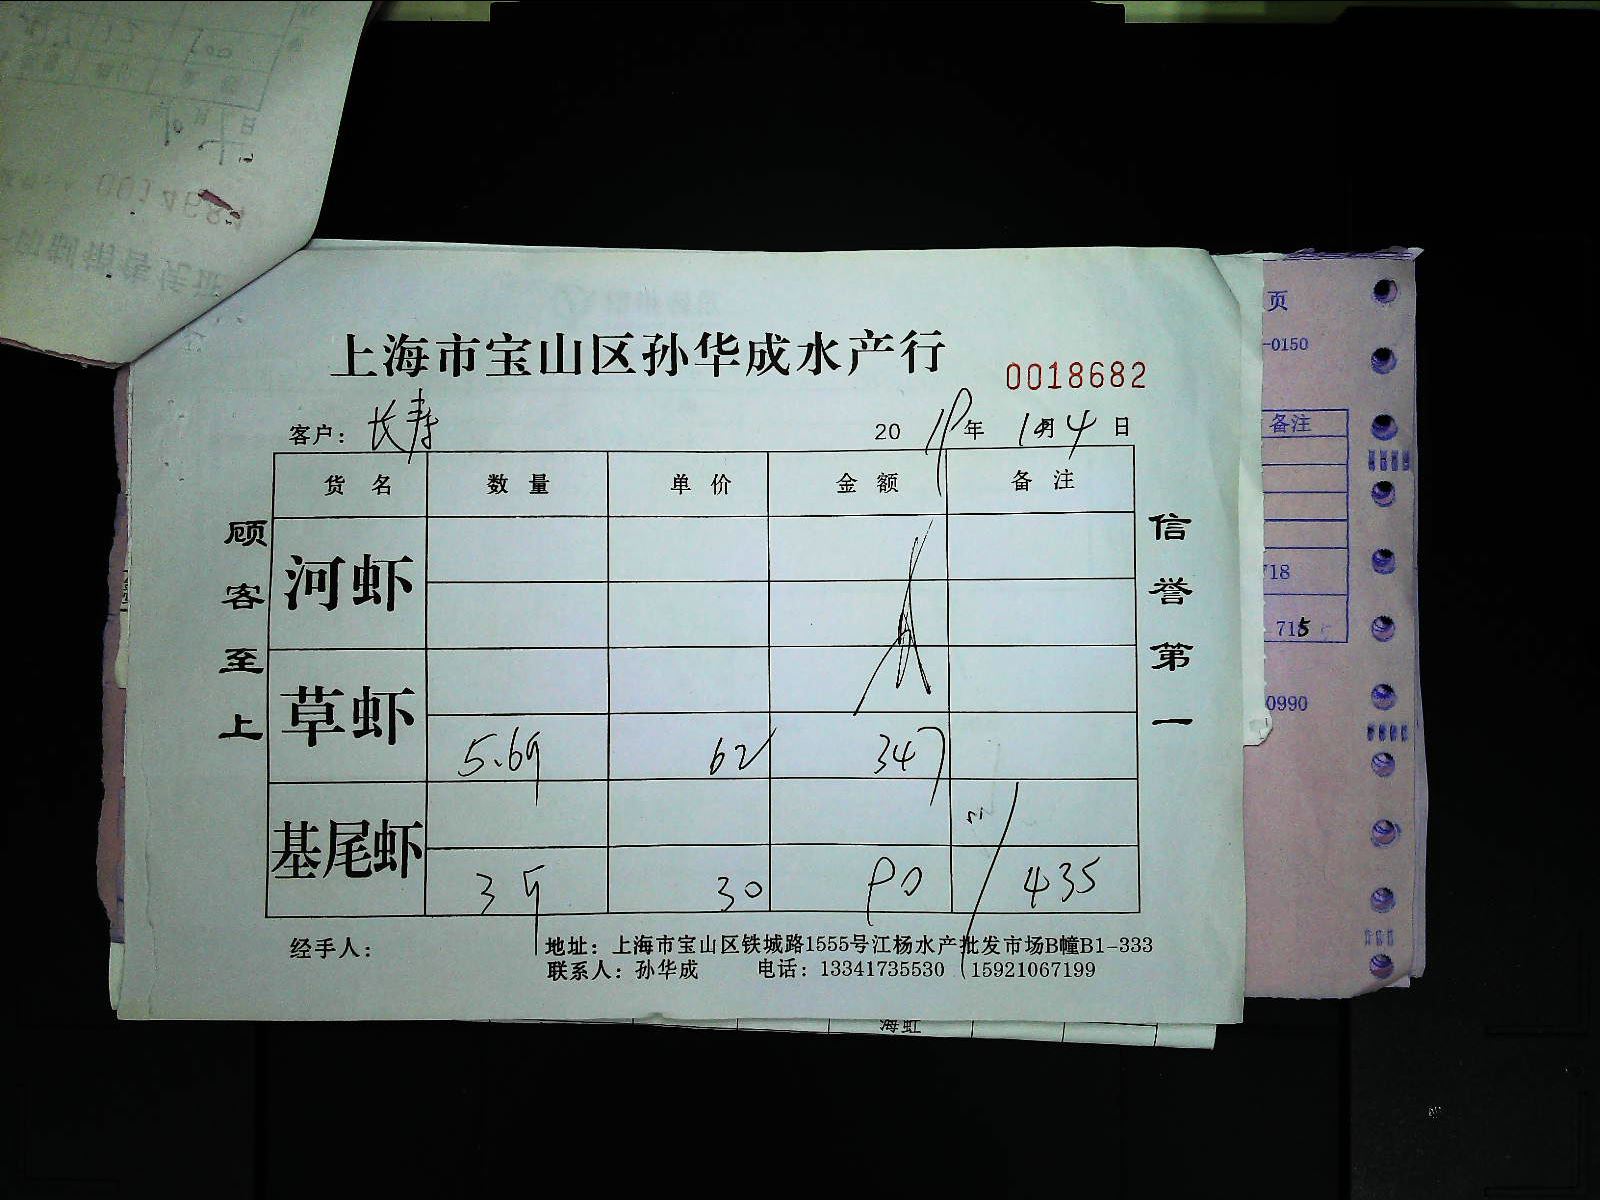 上海市宝山区孙华成水产行
0018682
客户：长寿
2019年10月4日
货名 数量 单价 金额 备注
河虾
草虾
5.6斤 62 347
基尾虾
3斤 30 90 435
顾客至上
信誉第一
经手人：
地址：上海市宝山区铁城路1555号江杨水产批发市场B幢B1-333
联系人：孙华成 电话：13341735530 15921067199
页
-0150
备注
718
715
0990
海虹